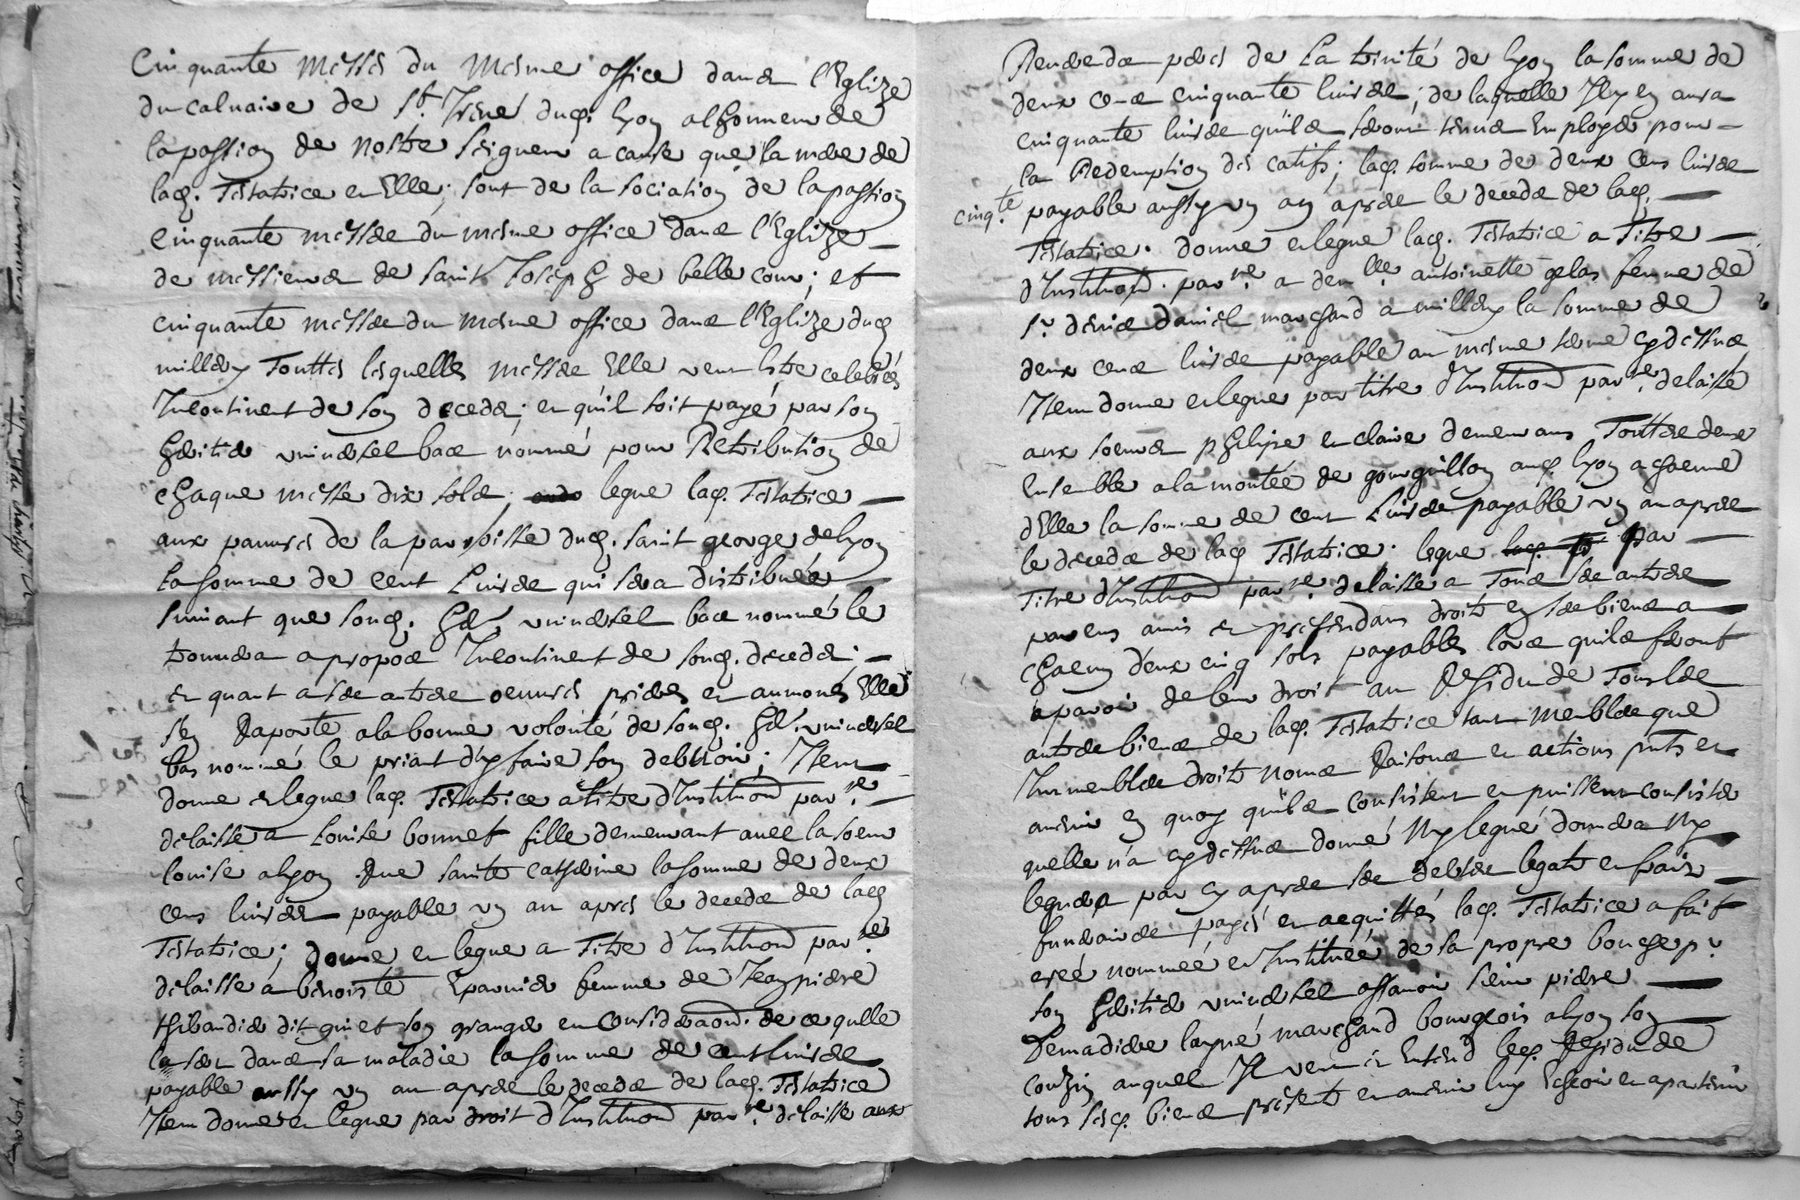 Cinquante messes du mesme office dans l'Eglize
du calvaire de St. Irené dud. lyon alhonneur de
la passion de nostre seigneur a cause que la mere de
lad. Testatrice et Elle; sont de la sociation de la passion
Cinquante messes du mesme office dans l'Eglize
de messieurs de saint Joseph de belle cour; et
cinquante messes du mesme office dans l'Eglize dud
millery Touttes lesquelles messes Elle veut estre celebrés
Incontinent de son deceds; et qu'il soit payé par son
heritier universel bas nommé pour Retribution de
chaque messe dix sols; legue lad. Testatrice
aux pauvres de la parroisse dud. saint george de lyon
la somme de cent livres qui sera distribuée
suivant que sond. her. universel bas nommé le
trouvera a propos Incontinent de sond. deceds;
et quant a ses autres oeuvres prieres et aumones Elle
s'en Raporte a la bonne volonté de sond. her. universel
bas nommé le priant d'y faire son debvoir; Item
donne et legue lad. Testatrice a titre d'Institution par.re
delaisse a Louise bonnet fille demeurant avec la soeur
louise a lyon Rue sainte catherine la somme de deux
cens livres payable un an apres le deceds de lad
Testatrice; donne et legue a Titre d'Institution par.re
delaisse a benoiste Epavier femme de Jean pierre
thibaudier dit guiet son granger en consideraon. de ce qu'elle
la ser dans sa maladie la somme de cent livres
payable aussy un an apres le deceds de lad. Testatrice
Item donne et legue par droit d'Institution par.re delaisse aux
Reverends peres de La trinité de lyon la somme de
deux cens cinquante livres; de laquelle Il y en aura
cinquante livres qu'ils seront tenus Employer pour
la Redemption des catifs; lad. somme de deux cens livres
cinq.te payable aussy un an apres le deceds de lad.
Testatrice. donne et legue lad. Testatrice a Titre
d'Institution. par.re a dem.lle antoinette gelas femme de
sr. daniel marchand a millery la somme de
deux cens livres payable au mesme terme cy dessus
Item donne et legue par titre d'Institution par.re delaisse
aux soeurs phelipe et claire demeurans Touttes deux
Ensemble a la montée de gourguillon aud. lyon a chacune
d'Elle la somme de cent Livres payable un an apres
le deceds de lad Testatrice. legue lad. par
Titre d'Institution par.re delaisse a Tous ses autres
parens amis et pretendans droits en ses biens a
chacun d'eux cinq sols payables lors qu'ils feront
aparoir de leur droit au Residu de Tous les
autres biens de lad. Testatrice tant meubles que
Immeubles droits noms Raisons et actions pnts et
avenir en quoy qu'ils consistent et puissent consister
quelle n'a cy dessus donné Ny legué donnera Ny
leguera par cy apres ses debtes legats et fraix
funeraires payés et acquittés lad. Testatrice a fait
creé nommée et Instituée de sa propre bouche pr.
son heritier universel assavoir sieur pierre
Demadiere layné marchand bourgeois a lyon son
couzin auquel Il veut et Entend led. Residu de
tous sesd. biens presents et avenir luy Echoir et apartenir